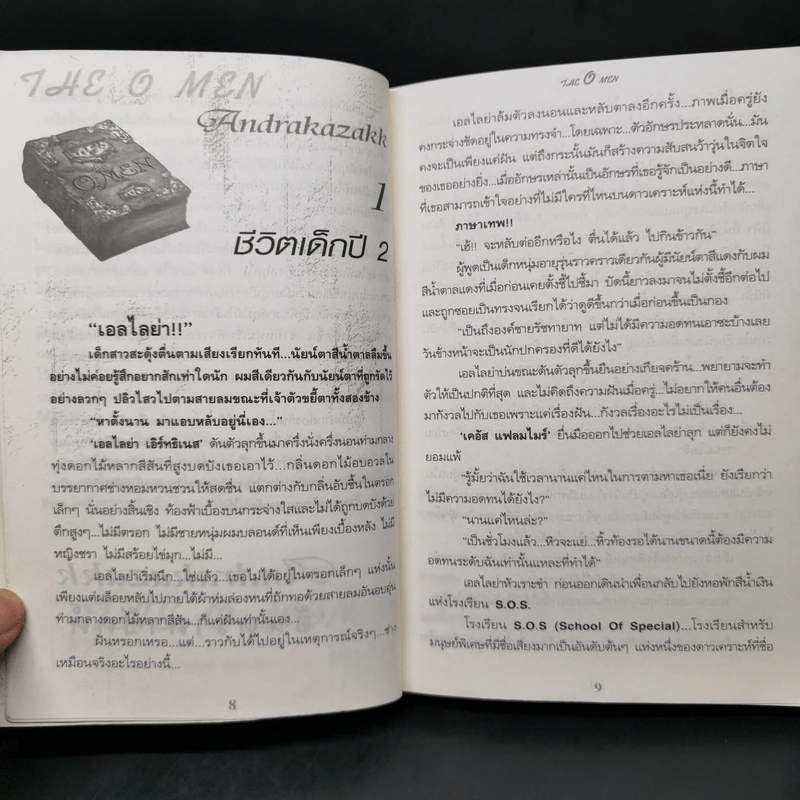 THE O MEN
Andrakazakk
THE
OMEN
1
ชีวิตเด็กปี 2
“เอลไลย่า!!”
เด็กสาวสะดุ้งตื่นตามเสียงเรียกทันที...นัยน์ตาสีน้ำตาลลืมขึ้น
อย่างไม่ค่อยรู้สึกอยากสักเท่าใดนัก ผมสีเดียวกันกับนัยน์ตาที่ถูกรัดไว้
อย่างลวกๆ ปลิวไสวไปตามสายลมขณะที่เจ้าตัวขยี้ตาทั้งสองข้าง
“หาตั้งนาน มาแอบหลับอยู่นี่เอง...”
‘เอลไลย่า เอิร์ทธิเนส’ ดันตัวลุกขึ้นมาครึ่งนั่งครึ่งนอนท่ามกลาง
ทุ่งดอกไม้หลากสีสันที่สูงบดบังเธอเอาไว้...กลิ่นดอกไม้อบอวลใน
บรรยากาศช่างหอมหวนชวนให้สดชื่น แตกต่างกับกลิ่นอับชื้นในตรอก
เล็กๆ นั่นอย่างสิ้นเชิง ท้องฟ้าเบื้องบนกระจ่างใสและไม่ได้ถูกบดบังด้วย
ตึกสูงๆ...ไม่มีตรอก ไม่มีชายหนุ่มผมบลอนด์ที่เห็นเพียงเบื้องหลัง ไม่มี
หญิงชรา ไม่มีสร้อยไข่มุก...ไม่มี...
เอลไลย่าเริ่มนึก...ใช่แล้ว...เธอไม่ได้อยู่ในตรอกเล็กๆ แห่งนั้น
เพียงแต่ผล็อยหลับไปภายใต้ผ้าห่มล่องหนที่ถักทอด้วยสายลมอันอบอุ่น
ท่ามกลางดอกไม้หลากสีสัน...ก็แค่ฝันเท่านั้นเอง...
ฝันหรอกเหรอ...แต่...ราวกับได้ไปอยู่ในเหตุการณ์จริงๆ...ช่าง
เหมือนจริงอะไรอย่างนี้...
8
THE O MEN
เอลไลย่าล้มตัวลงนอนและหลับตาลงอีกครั้ง...ภาพเมื่อครู่ยัง
คงกระจ่างชัดอยู่ในความทรงจำ...โดยเฉพาะ...ตัวอักษรประหลาดนั่น...มัน
คงจะเป็นเพียงแค่ฝัน แต่ถึงกระนั้นมันก็สร้างความสับสนว้าวุ่นในจิตใจ
ของเธออย่างยิ่ง...เมื่ออักษรเหล่านั้นเป็นอักษรที่เธอรู้จักเป็นอย่างดี...ภาษา
ที่เธอสามารถเข้าใจอย่างที่ไม่มีใครที่ไหนบนดาวเคราะห์แห่งนี้ทำได้...
ภาษาเทพ!!
“เฮ้!! จะหลับต่ออีกหรือไง ตื่นได้แล้ว ไปกินข้าวกัน”
ผู้พูดเป็นเด็กหนุ่มอายุรุ่นราวคราวเดียวกันผู้มีนัยน์ตาสีแดงกับผม
สีน้ำตาลแดงที่เมื่อก่อนเคยตั้งชี้ไปชี้มา บัดนี้ยาวลงมาจนไม่ตั้งชี้อีกต่อไป
และถูกซอยเป็นทรงจนเรียกได้ว่าดูดีขึ้นกว่าเมื่อก่อนขึ้นเป็นกอง
“เป็นถึงองค์ชายรัชทายาท แต่ไม่ได้มีความอดทนเอาซะบ้างเลย
วันข้างหน้าจะเป็นนักปกครองที่ดีได้ยังไง”
เอลไลย่าบ่นขณะดันตัวลุกขึ้นยืนอย่างเกียจคร้าน...พยายามจะทำ
ตัวให้เป็นปกติที่สุด และไม่คิดถึงความฝันเมื่อครู่...ไม่อยากให้คนอื่นต้อง
มากังวลไปกับเธอเพราะแค่เรื่องฝัน...กังวลเรื่องอะไรไม่เป็นเรื่อง...
‘เคอัส แฟลมไมร์’ ยื่นมือออกไปช่วยเอลไลย่าลุก แต่ก็ยังคงไม่
ยอมแพ้
“รู้มั้ยว่าฉันใช้เวลานานแค่ไหนในการตามหาเธอเนี่ย ยังเรียกว่า
ไม่มีความอดทนได้ยังไง?”
“นานแค่ไหนล่ะ?”
“เป็นชั่วโมงแล้ว...หิวจะแย่...หิ้วท้องรอได้นานขนาดนี้ต้องมีความ
อดทนระดับฉันเท่านั้นแหละที่ทำได้”
เอลไลย่าหัวเราะขำ ก่อนออกเดินนำเพื่อนกลับไปยังหอพักสีน้ำเงิน
แห่งโรงเรียน S.O.S.
โรงเรียน S.O.S (School Of Special)...โรงเรียนสำหรับ
มนุษย์พิเศษที่มีชื่อเสียงมากเป็นอันดับต้นๆ แห่งหนึ่งของดาวเคราะห์ที่ชื่อ
9